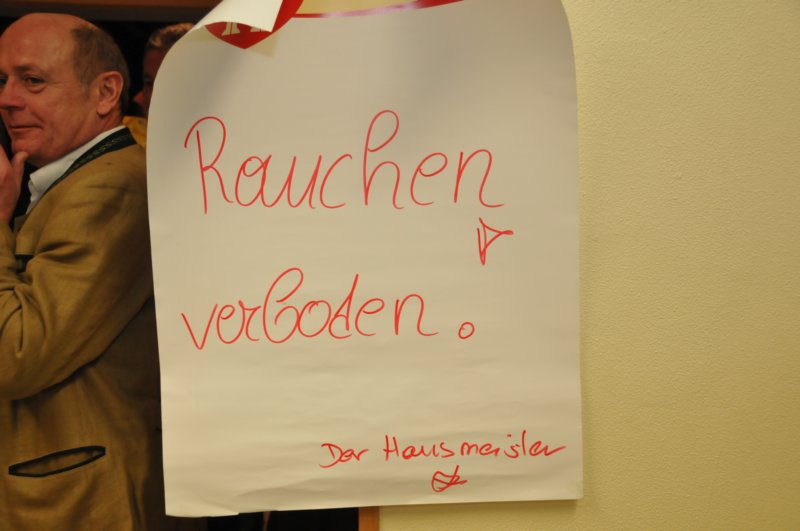 Rauchen
verboden.
Der Hausmeister